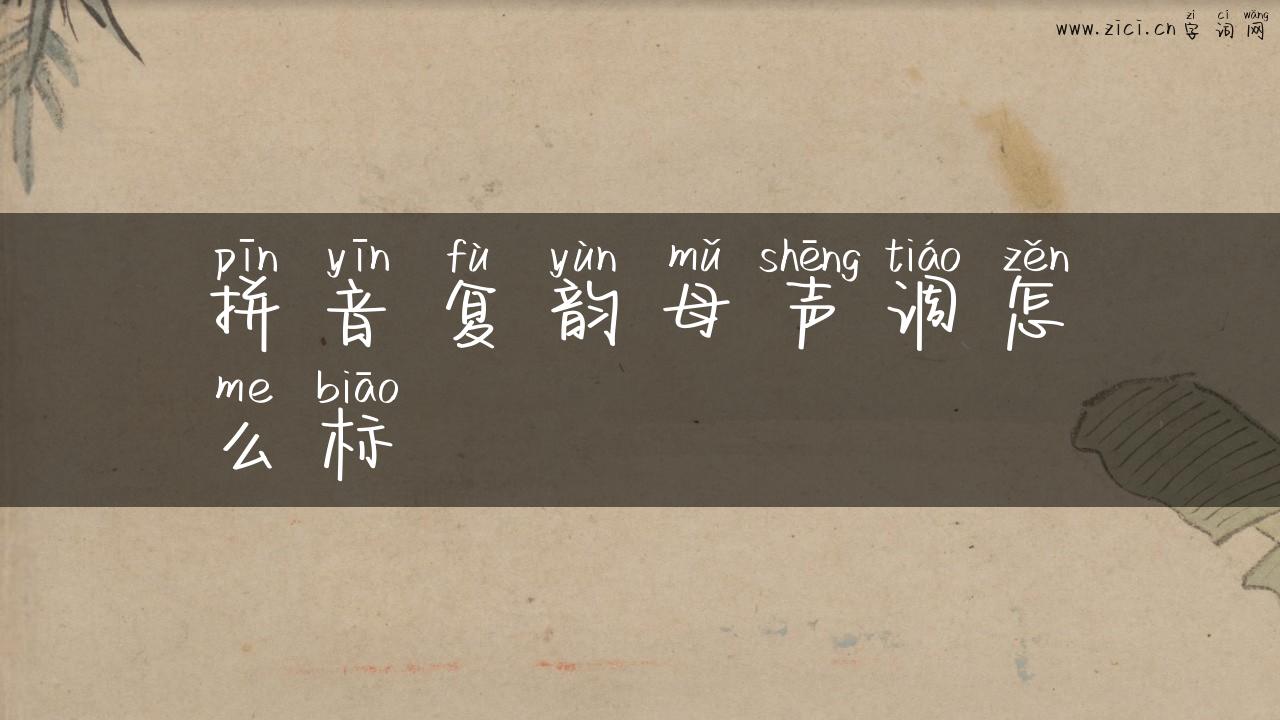 zì cí wǎng
www.zici.cn 字词网
pīn yīn fù yùn mǔ shēng tiáo zěn
拼音复韵母声调怎
me biāo
么标